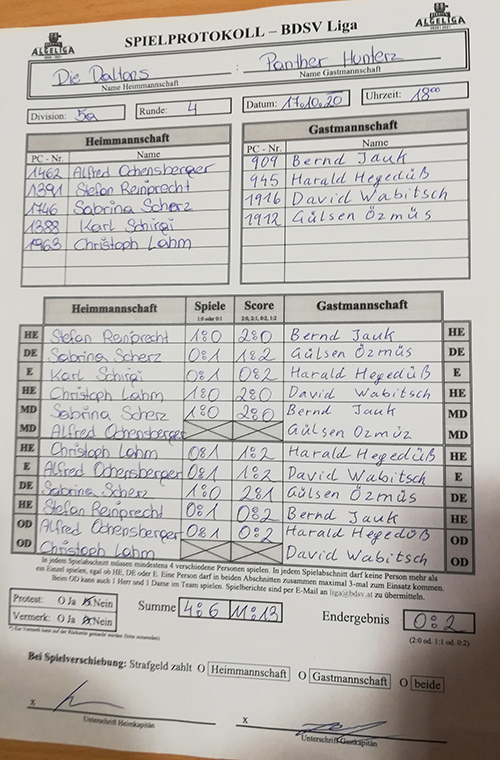 ALGELIGA
SPIELPROTOKOLL – BDSV Liga
ALGELIGA
Die Daltons : Panther Hunterz
Name Heimmannschaft Name Gastmannschaft
Division: 5a Runde: 4 Datum: 17.10.20 Uhrzeit: 18⁰⁰
Heimmannschaft
PC - Nr. Name
1462 Alfred Ochensberger
1391 Stefan Reinprecht
1746 Sabrina Scherz
1388 Karl Schirgi
1963 Christoph Lahm
Gastmannschaft
PC - Nr. Name
909 Bernd Jauk
945 Harald Hegedüß
1916 David Wabitsch
1912 Gülsen Özmüs
Heimmannschaft Spiele Score Gastmannschaft
1:0 oder 0:1 2:0, 2:1, 0:2, 1:2
HE Stefan Reinprecht 1:0 2:0 Bernd Jauk HE
DE Sabrina Scherz 0:1 1:2 Gülsen Özmüs DE
E Karl Schirgi 0:1 0:2 Harald Hegedüß E
HE Christoph Lahm 1:0 2:0 David Wabitsch HE
MD Sabrina Scherz 1:0 2:0 Bernd Jauk MD
MD Alfred Ochensberger Gülsen Özmüz MD
HE Christoph Lahm 0:1 1:2 Harald Hegedüß HE
E Alfred Ochensberger 0:1 1:2 David Wabitsch E
DE Sabrina Scherz 1:0 2:1 Gülsen Özmüs DE
HE Stefan Reinprecht 0:1 0:2 Bernd Jauk HE
OD Alfred Ochensberger 0:1 0:2 Harald Hegedüß OD
OD Christoph Lahm David Wabitsch OD
In jedem Spielabschnitt müssen mindestens 4 verschiedene Personen spielen. In jedem Spielabschnitt darf keine Person mehr als
ein Einzel spielen, egal ob HE, DE oder E. Eine Person darf in beiden Abschnitten zusammen maximal 3-mal zum Einsatz kommen.
Beim OD kann auch 1 Herr und 1 Dame im Team spielen. Spielberichte sind per E-Mail an liga@bdsv.at zu übermitteln.
Protest: O Ja O Nein
Vermerk: O Ja O Nein
Summe 4:6 11:13 Endergebnis 0:2
(2:0 od. 1:1 od. 0:2)
Bei Spielverschiebung: Strafgeld zahlt O Heimmannschaft O Gastmannschaft O beide
x
Unterschrift Heimkapitän
x
Unterschrift Gastkapitän